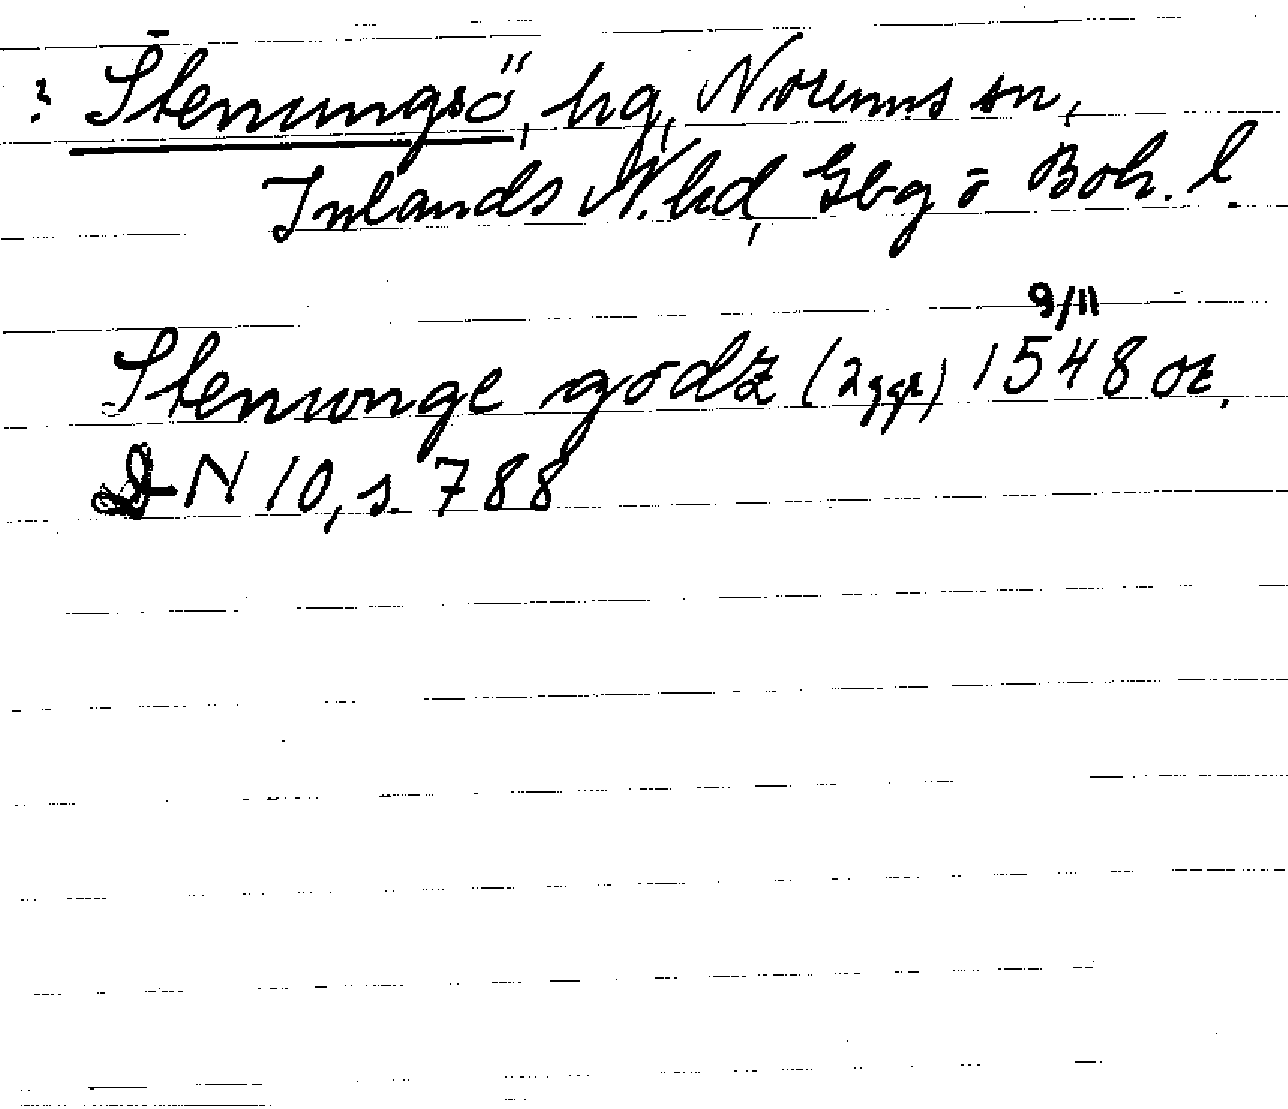 ? Stenungsö, hg, Norums sn,
Inlands N. hd, Gbg o Boh. l.
Stenwnge godz (2 ggr) 9/11 1548 or.
DN 10, s. 788